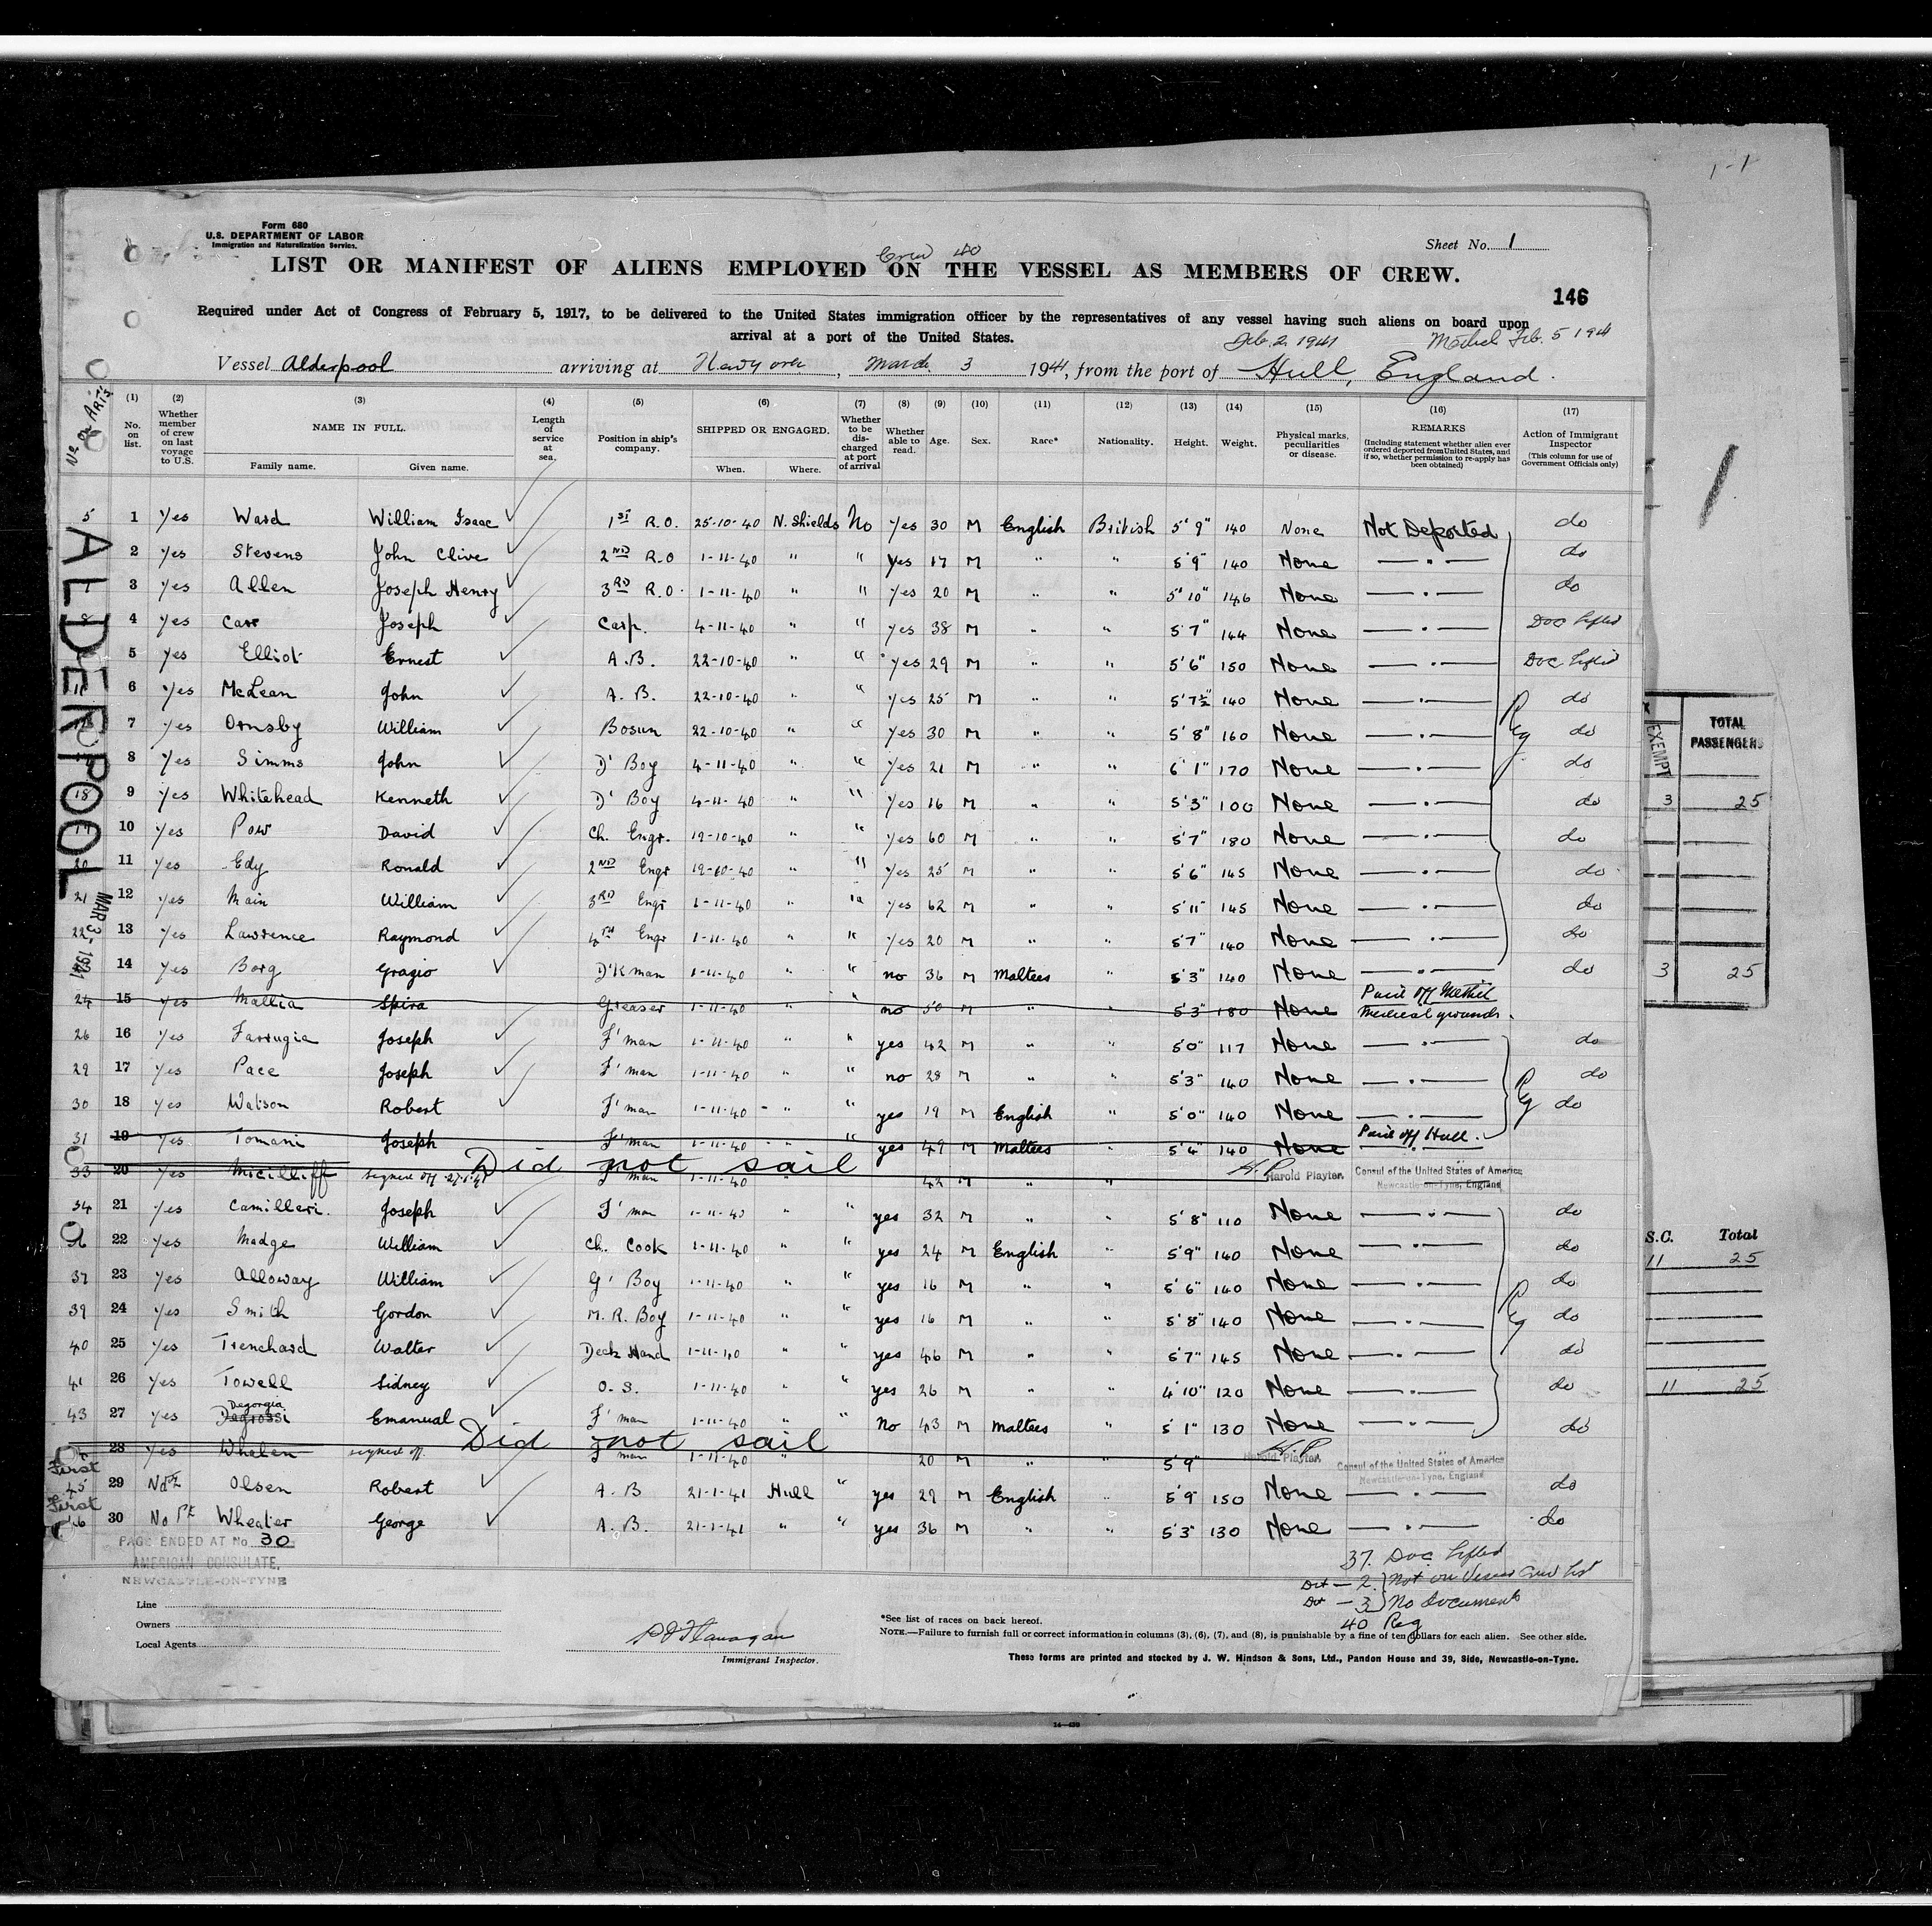 1-1
Form 680
U.S. DEPARTMENT OF LABOR
Immigration and Naturalization Service.
Sheet No. 1
Crew 40
LIST OR MANIFEST OF ALIENS EMPLOYED ON THE VESSEL AS MEMBERS OF CREW.
146
Required under Act of Congress of February 5, 1917, to be delivered to the United States immigration officer by the representatives of any vessel having such aliens on board upon
arrival at a port of the United States.
Feb. 2, 1941 Methil Feb. 5 1941
Vessel Alderpool arriving at New York, March 3 1941, from the port of Hull, England.
(1) No. on list. (2) Whether member of crew on last voyage to U.S. (3) NAME IN FULL. Family name. Given name. (4) Length of service at sea. (5) Position in ship's company. (6) SHIPPED OR ENGAGED. When. Where. (7) Whether to be discharged at port of arrival (8) Whether able to read. (9) Age. (10) Sex. (11) Race* (12) Nationality. (13) Height. (14) Weight. (15) Physical marks, peculiarities or disease. (16) REMARKS (Including statement whether alien ever ordered deported from United States, and if so, whether permission to re-apply has been obtained) (17) Action of Immigrant Inspector (This column for use of Government Officials only)
No. on Arts
ALDERPOOL
MAR 3, 1941
5 1 Yes Ward William Isaac 1st R.O. 25-10-40 N. Shields No Yes 30 M English British 5'9" 140 None Not Deported do
2 Yes Stevens John Clive 2ND R.O 1-11-40 " " Yes 17 M " " 5'9" 140 None — " — do
3 Yes Allen Joseph Henry 3RD R.O. 1-11-40 " " Yes 20 M " " 5'10" 146 None — " — do
8 4 Yes Carr Joseph Carp. 4-11-40 " " Yes 38 M " " 5'7" 144 None — " — Doc lifted
5 Yes Elliot Ernest A.B. 22-10-40 " " Yes 29 M " " 5'6" 150 None — " — Doc lifted
6 Yes McLean John A.B. 22-10-40 " " Yes 25 M " " 5'7½" 140 None — " — do
7 Yes Ornsby William Bosun 22-10-40 " " Yes 30 M " " 5'8" 160 None — " — Reg do
8 Yes Simms John D' Boy 4-11-40 " " Yes 21 M " " 6'1" 170 None — " — do
18 9 Yes Whitehead Kenneth D' Boy 4-11-40 " " Yes 16 M " " 5'3" 100 None — " — do
10 Yes Pow David Ch. Engr. 19-10-40 " " Yes 60 M " " 5'7" 180 None — " — do
20 11 Yes Edy Ronald 2ND Engr 19-10-40 " " Yes 25 M " " 5'6" 145 None — " — do
21 12 Yes Main William 3RD Engr 1-11-40 " " Yes 62 M " " 5'11" 145 None — " — do
22 13 Yes Lawrence Raymond 4TH Engr 1-11-40 " " Yes 20 M " " 5'7" 140 None — " — do
14 Yes Borg Grazio D'Kman 1-11-40 " " no 36 M Maltees " 5'3" 140 None — " — do
24 15 Yes Mallia Spira Greaser 1-11-40 " no 50 M " " 5'3" 180 None Paid off Methil Medical grounds.
26 16 Yes Farrugia Joseph F'man 1-11-40 " " yes 42 M " " 5'0" 117 None — " — do
29 17 Yes Pace Joseph F'man 1-11-40 " " no 28 M " " 5'3" 140 None — " — Reg do
30 18 Yes Watson Robert F'man 1-11-40 " " yes 19 M English " 5'0" 140 None — " — do
31 19 Yes Tomani Joseph F'man 1-11-40 " " yes 49 M Maltees " 5'4" 140 None Paid off Hull.
33 20 Yes Mcilliff signed off 27-1-41 Did not sail F'man 1-11-40 " 42 M " " H.P. Harold Playter, Consul of the United States of America Newcastle-on-Tyne, England
34 21 Yes Camilleri. Joseph F'man 1-11-40 " " yes 32 M " " 5'8" 110 None — " — do
36 22 Yes Madge William Ch. Cook 1-11-40 " " yes 24 M English " 5'9" 140 None — " — do
37 23 Yes Alloway William G' Boy 1-11-40 " " yes 16 M " " 5'6" 140 None — " — do
39 24 Yes Smith Gordon M.R. Boy 1-11-40 " " yes 16 M " " 5'8" 140 None — " — Reg do
40 25 Yes Trenchard Walter Deck Hand 1-11-40 " " yes 46 M " " 5'7" 145 None — " — do
41 26 Yes Towell Sidney O.S. 1-11-40 " " yes 26 M " " 4'10" 120 None — " — do
43 27 Yes Degrossi Degorgia Emanual F'man 1-11-40 " " No 43 M Maltees " 5'1" 130 None — " — do
28 Yes Whelan signed off. Did not sail F'man 1-11-40 " 20 M " " 5'9" H.P. Harold Playter, Consul of the United States of America Newcastle-on-Tyne, England
First 45 29 No Olsen Robert A.B 21-1-41 Hull " yes 29 M English " 5'9" 150 None — " — do
First 46 30 No Wheater George A.B. 21-1-41 " " yes 36 M " " 5'3" 130 None — " — do
PAGE ENDED AT No. 30
AMERICAN CONSULATE,
NEWCASTLE-ON-TYNE
37. Doc lifted
Det — 2 } Not on Visaed Crew List
Det — 3 } No Documents
40 Reg
Line
Owners
Local Agents
P J Flanagan
Immigrant Inspector.
*See list of races on back hereof.
NOTE.—Failure to furnish full or correct information in columns (3), (6), (7), and (8), is punishable by a fine of ten dollars for each alien. See other side.
These forms are printed and stocked by J. W. Hindson & Sons, Ltd., Pandon House and 39, Side, Newcastle-on-Tyne.
EXEMPT TOTAL PASSENGERS
3 25
3 25
S.C. Total
11 25
11 25